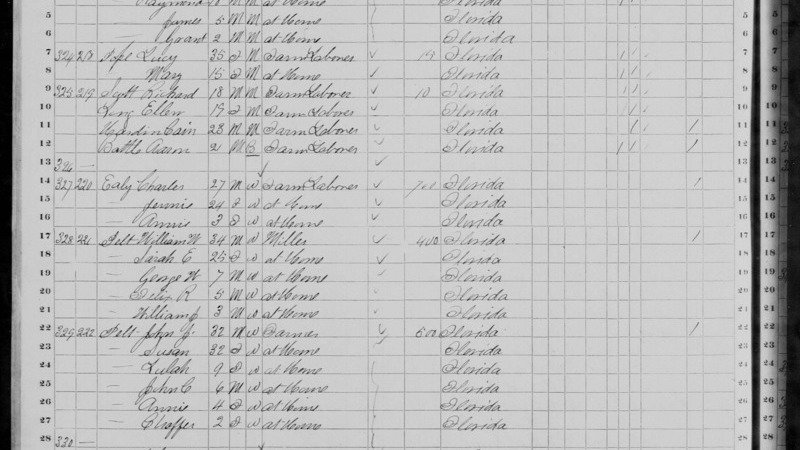 Raymond 10 M M at Home Florida
5 James 5 M M at Home Florida 5
6 Grant 2 M M at Home Florida 6
7 324 218 Lucy 35 F M Farm Laborer 15 Florida 7
8 Mary 15 F M at Home Florida 8
9 325 219 Scott Richard 18 M M Farm Laborer 10 Florida 9
10 King Ellen 19 F M Farm Laborer Florida 10
11 Cain 23 M M Farm Laborer Florida 11
12 Battle 2 M B Farm Laborer Florida 12
13 326 — 13
14 327 220 Ealy Charles 27 M W Farm Laborer 700 Florida 14
15 — Jennie 24 F W at Home Florida 15
16 — Annie 3 F W at Home Florida 16
17 328 221 Felt William W 34 M W Miller 400 Florida 17
18 — Sarah E 25 F W at Home Florida 18
19 — George W 7 M W at Home Florida 19
20 — Felix R 5 M W at Home Florida 20
21 — William J 3 M W at Home Florida 21
22 329 222 Felt John J. 32 M W Farmer 500 Florida 22
23 — Susan 32 F W at Home Florida 23
24 — Lulah 9 F W at Home Florida 24
25 — John C 6 M W at Home Florida 25
26 — Annie 4 F W at Home Florida 26
27 — Chaffer 2 F W at Home Florida 27
28 330 — 28